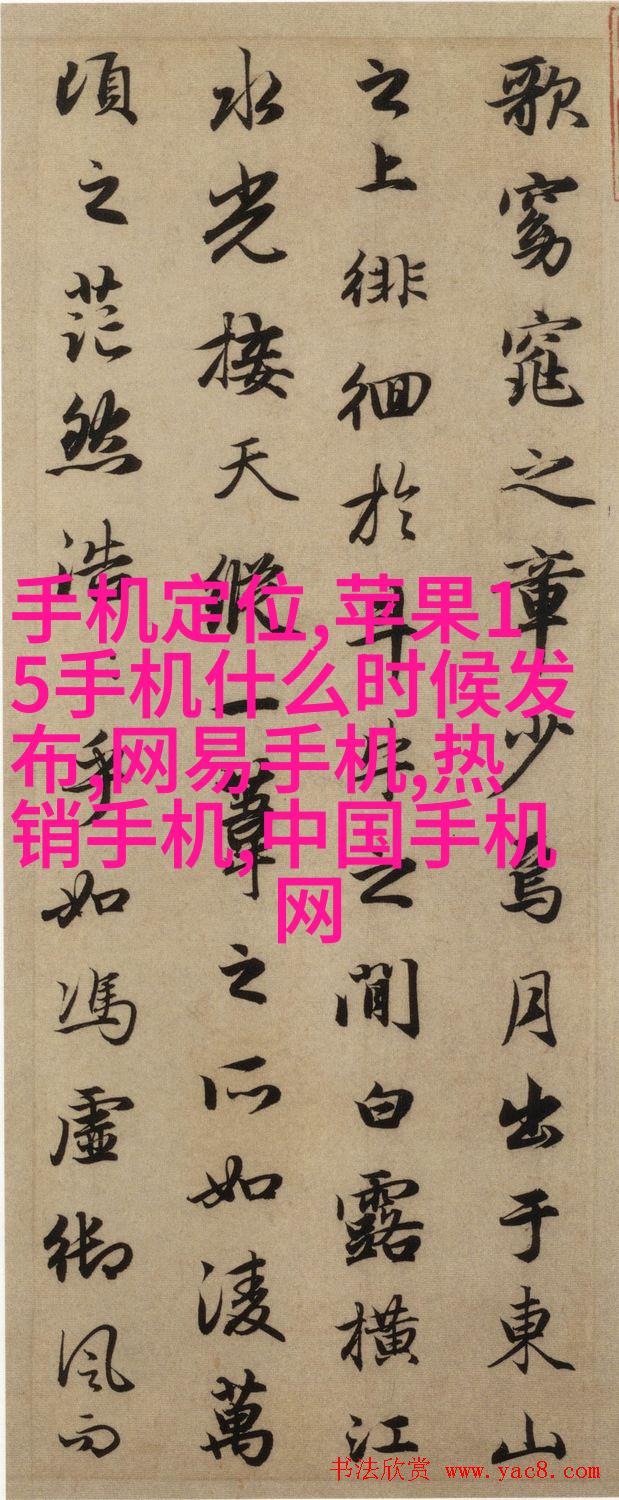 歌窈窕之章少焉月出于東山
之上徘徊於斗牛之間白露橫江
水光接天縱一葦之所如淩萬
頃之茫然浩〻乎如馮虛御風而
手机定位,苹果1
5手机什么时候发
布,网易手机,热
销手机,中国手机
网
书法欣赏 www.yac8.com